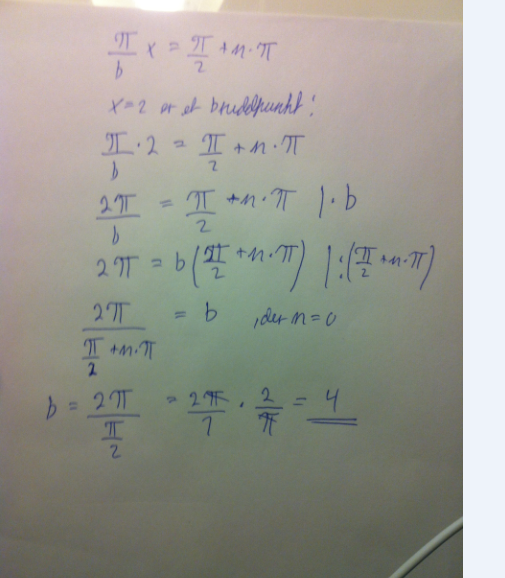 π/b x = π/2 + n·π
x=2 er et bruddpunkt:
π/b · 2 = π/2 + n·π
2π/b = π/2 + n·π |·b
2π = b(π/2 + n·π) |:(π/2 + n·π)
2π/(π/2 + n·π) = b , der n=0
b = 2π/(π/2) = 2π/1 · 2/π = 4